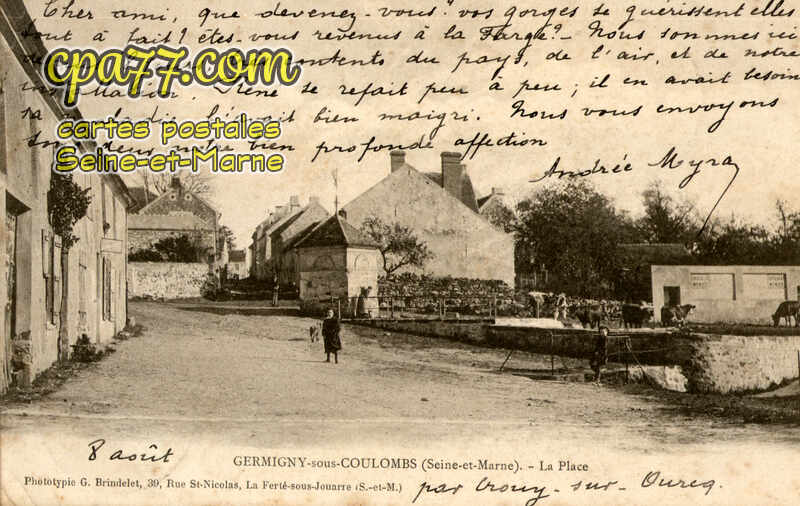 Cher ami, que devenez-vous? vos gorges se guérissent elles
tout à fait? êtes-vous revenus à la Farge? - Nous sommes ici
contents du pays, de l'air, et de notre
René se refait peu à peu; il en avait besoin
bien maigri. Nous vous envoyons
tous deux notre bien profonde affection
Andrée Myra
cpa77.com
cartes postales
Seine-et-Marne
8 août
GERMIGNY-sous-COULOMBS (Seine-et-Marne). - La Place
Phototypie G. Brindelet, 39, Rue St-Nicolas, La Ferté-sous-Jouarre (S.-et-M.)
par Crouy-sur-Ourcq.